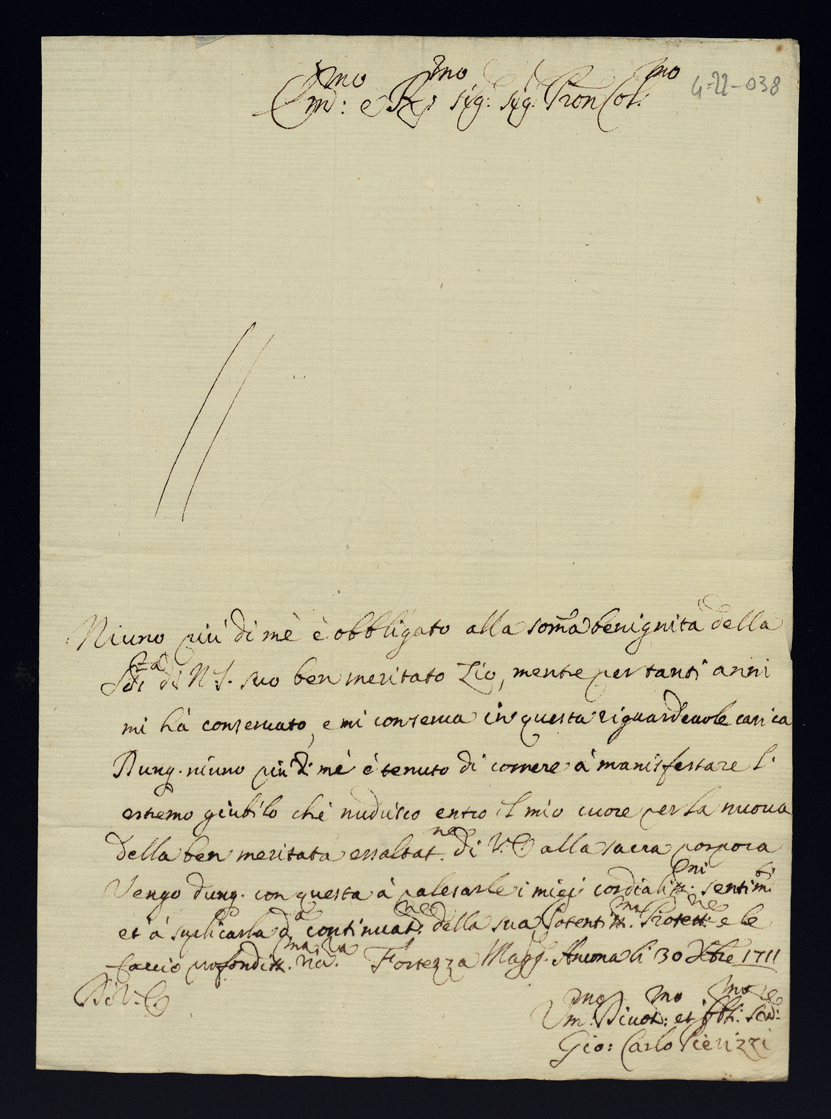 Em.mo e R.mo Sig: Sig: Pron Col:mo
4-22-038
Niuno più di mè è obbligato alla som̃a benignità della
S.tà di N. S. suo ben meritato Zio, mentre per tanti anni
mi hà conseruato, e mi conserua in questa riguardeuole carica
Dunq. niuno più di mè è tenuto di correre à manifestare l'
estremo giubilo che nudrisco entro il mio cuore per la nuoua
della ben meritata essaltat.ne di V. E. alla sacra porpora
Vengo dunq. con questa à palesarle i miei cordialiss.mi sentim.ti
et à suplicarla d.a continuat.ne della sua Potentiss.ma Protett.ne e le
faccio profondiss.ma riu.za Fortezza Magg. Ancona li 30 Xbre 1711
Di V. E.
Um.mo Diuot.mo et obb.mo Ser.re
Gio: Carlo Pierizzi